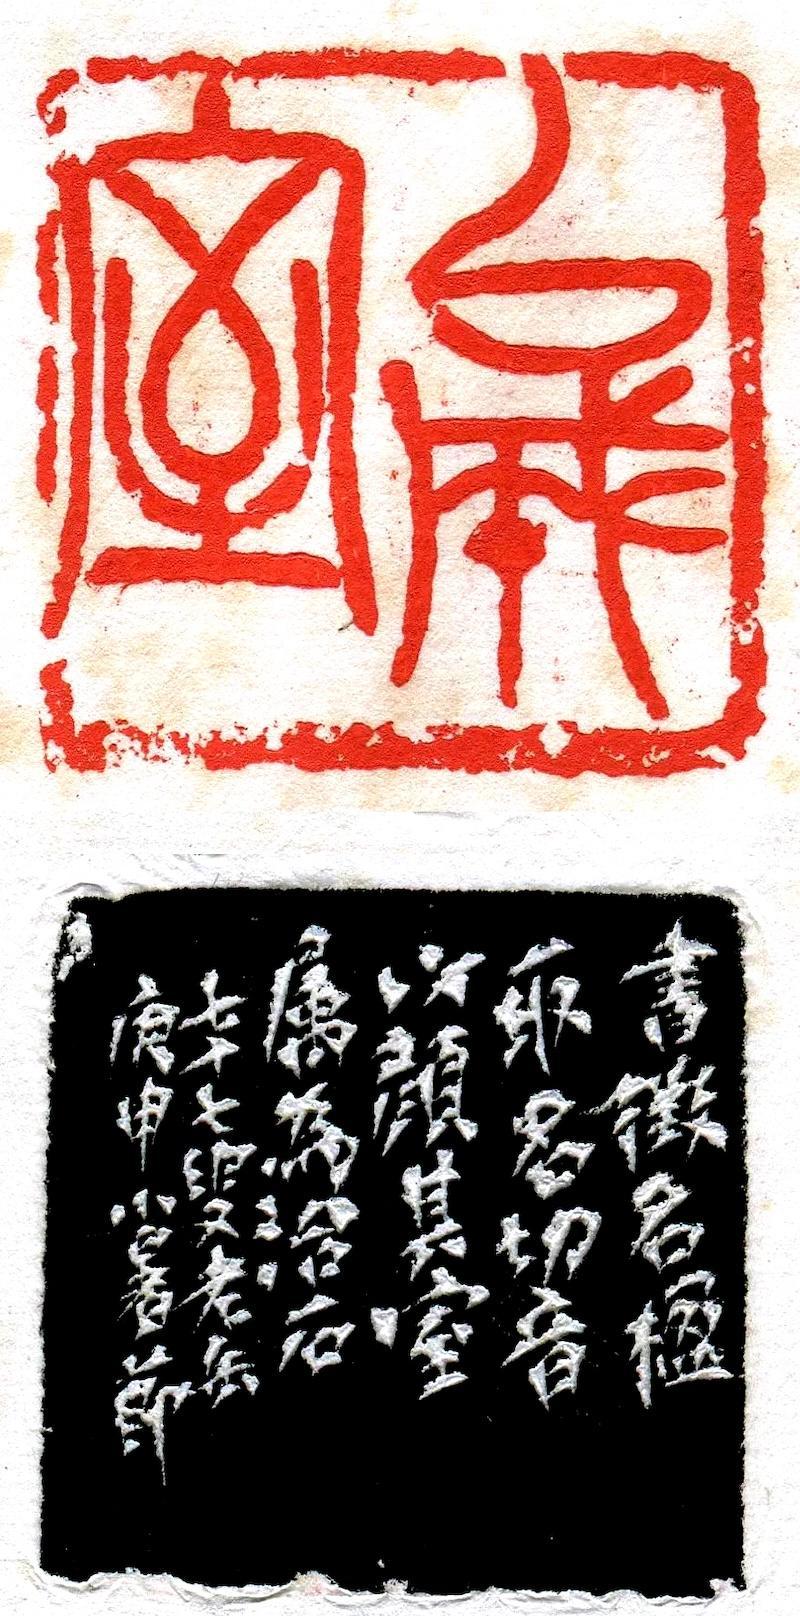 室
書徵名極
取名切音
以顏其室
属為治石
七十七叟老缶
庚申小暑節